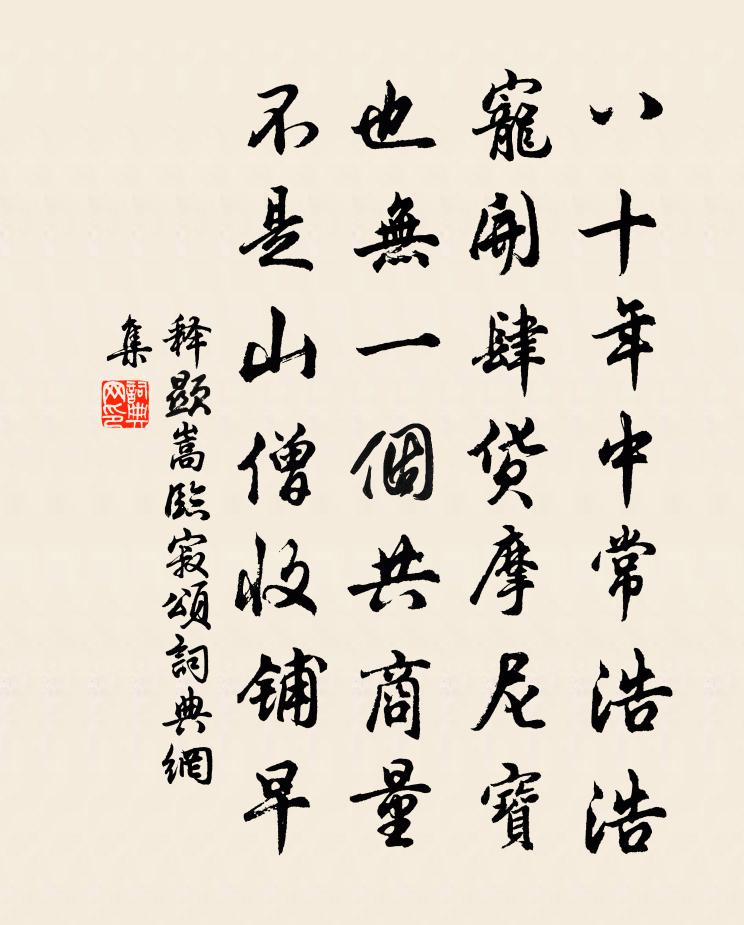 八十年中常浩浩
寵開肆貨摩尼寶
也無一個共商量
不是山僧收鋪早
释顯嵩臨寂頌詞典網
集
詞典
网印